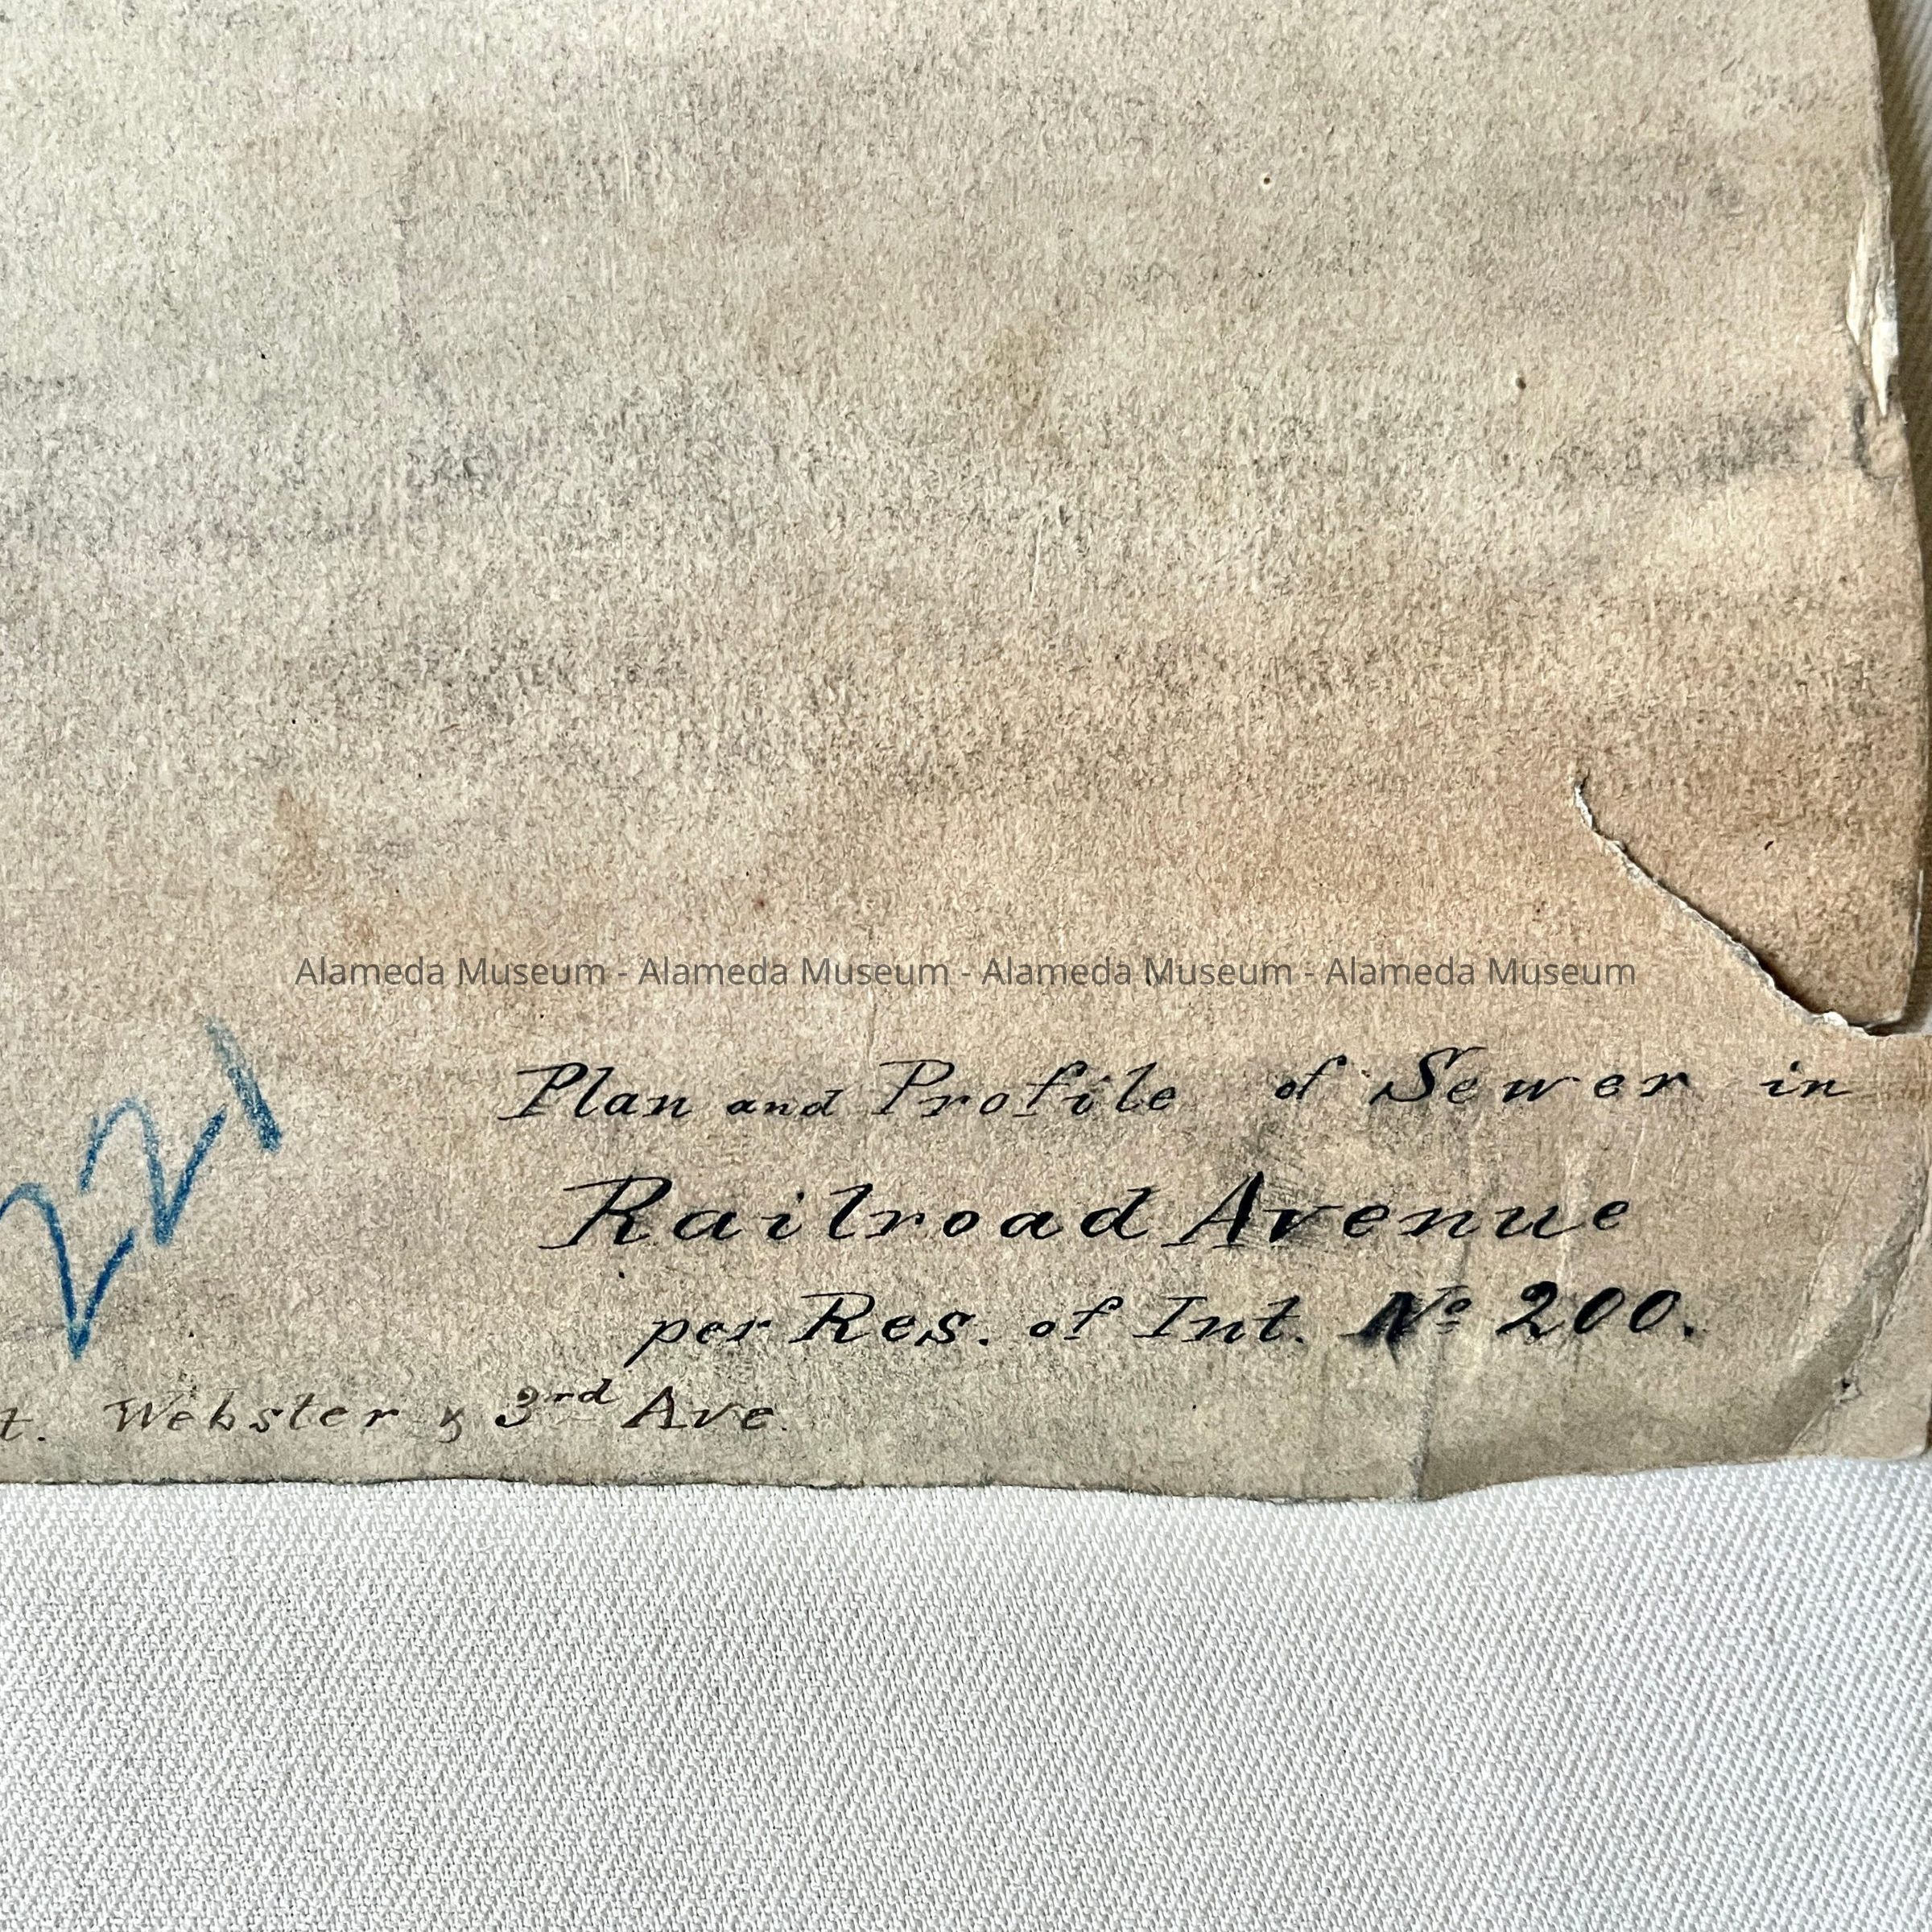 Alameda Museum - Alameda Museum - Alameda Museum - Alameda Museum
221
Plan and Profile of Sewer in
Railroad Avenue
per Res. of Int. No 200.
t. Webster & 3rd Ave.